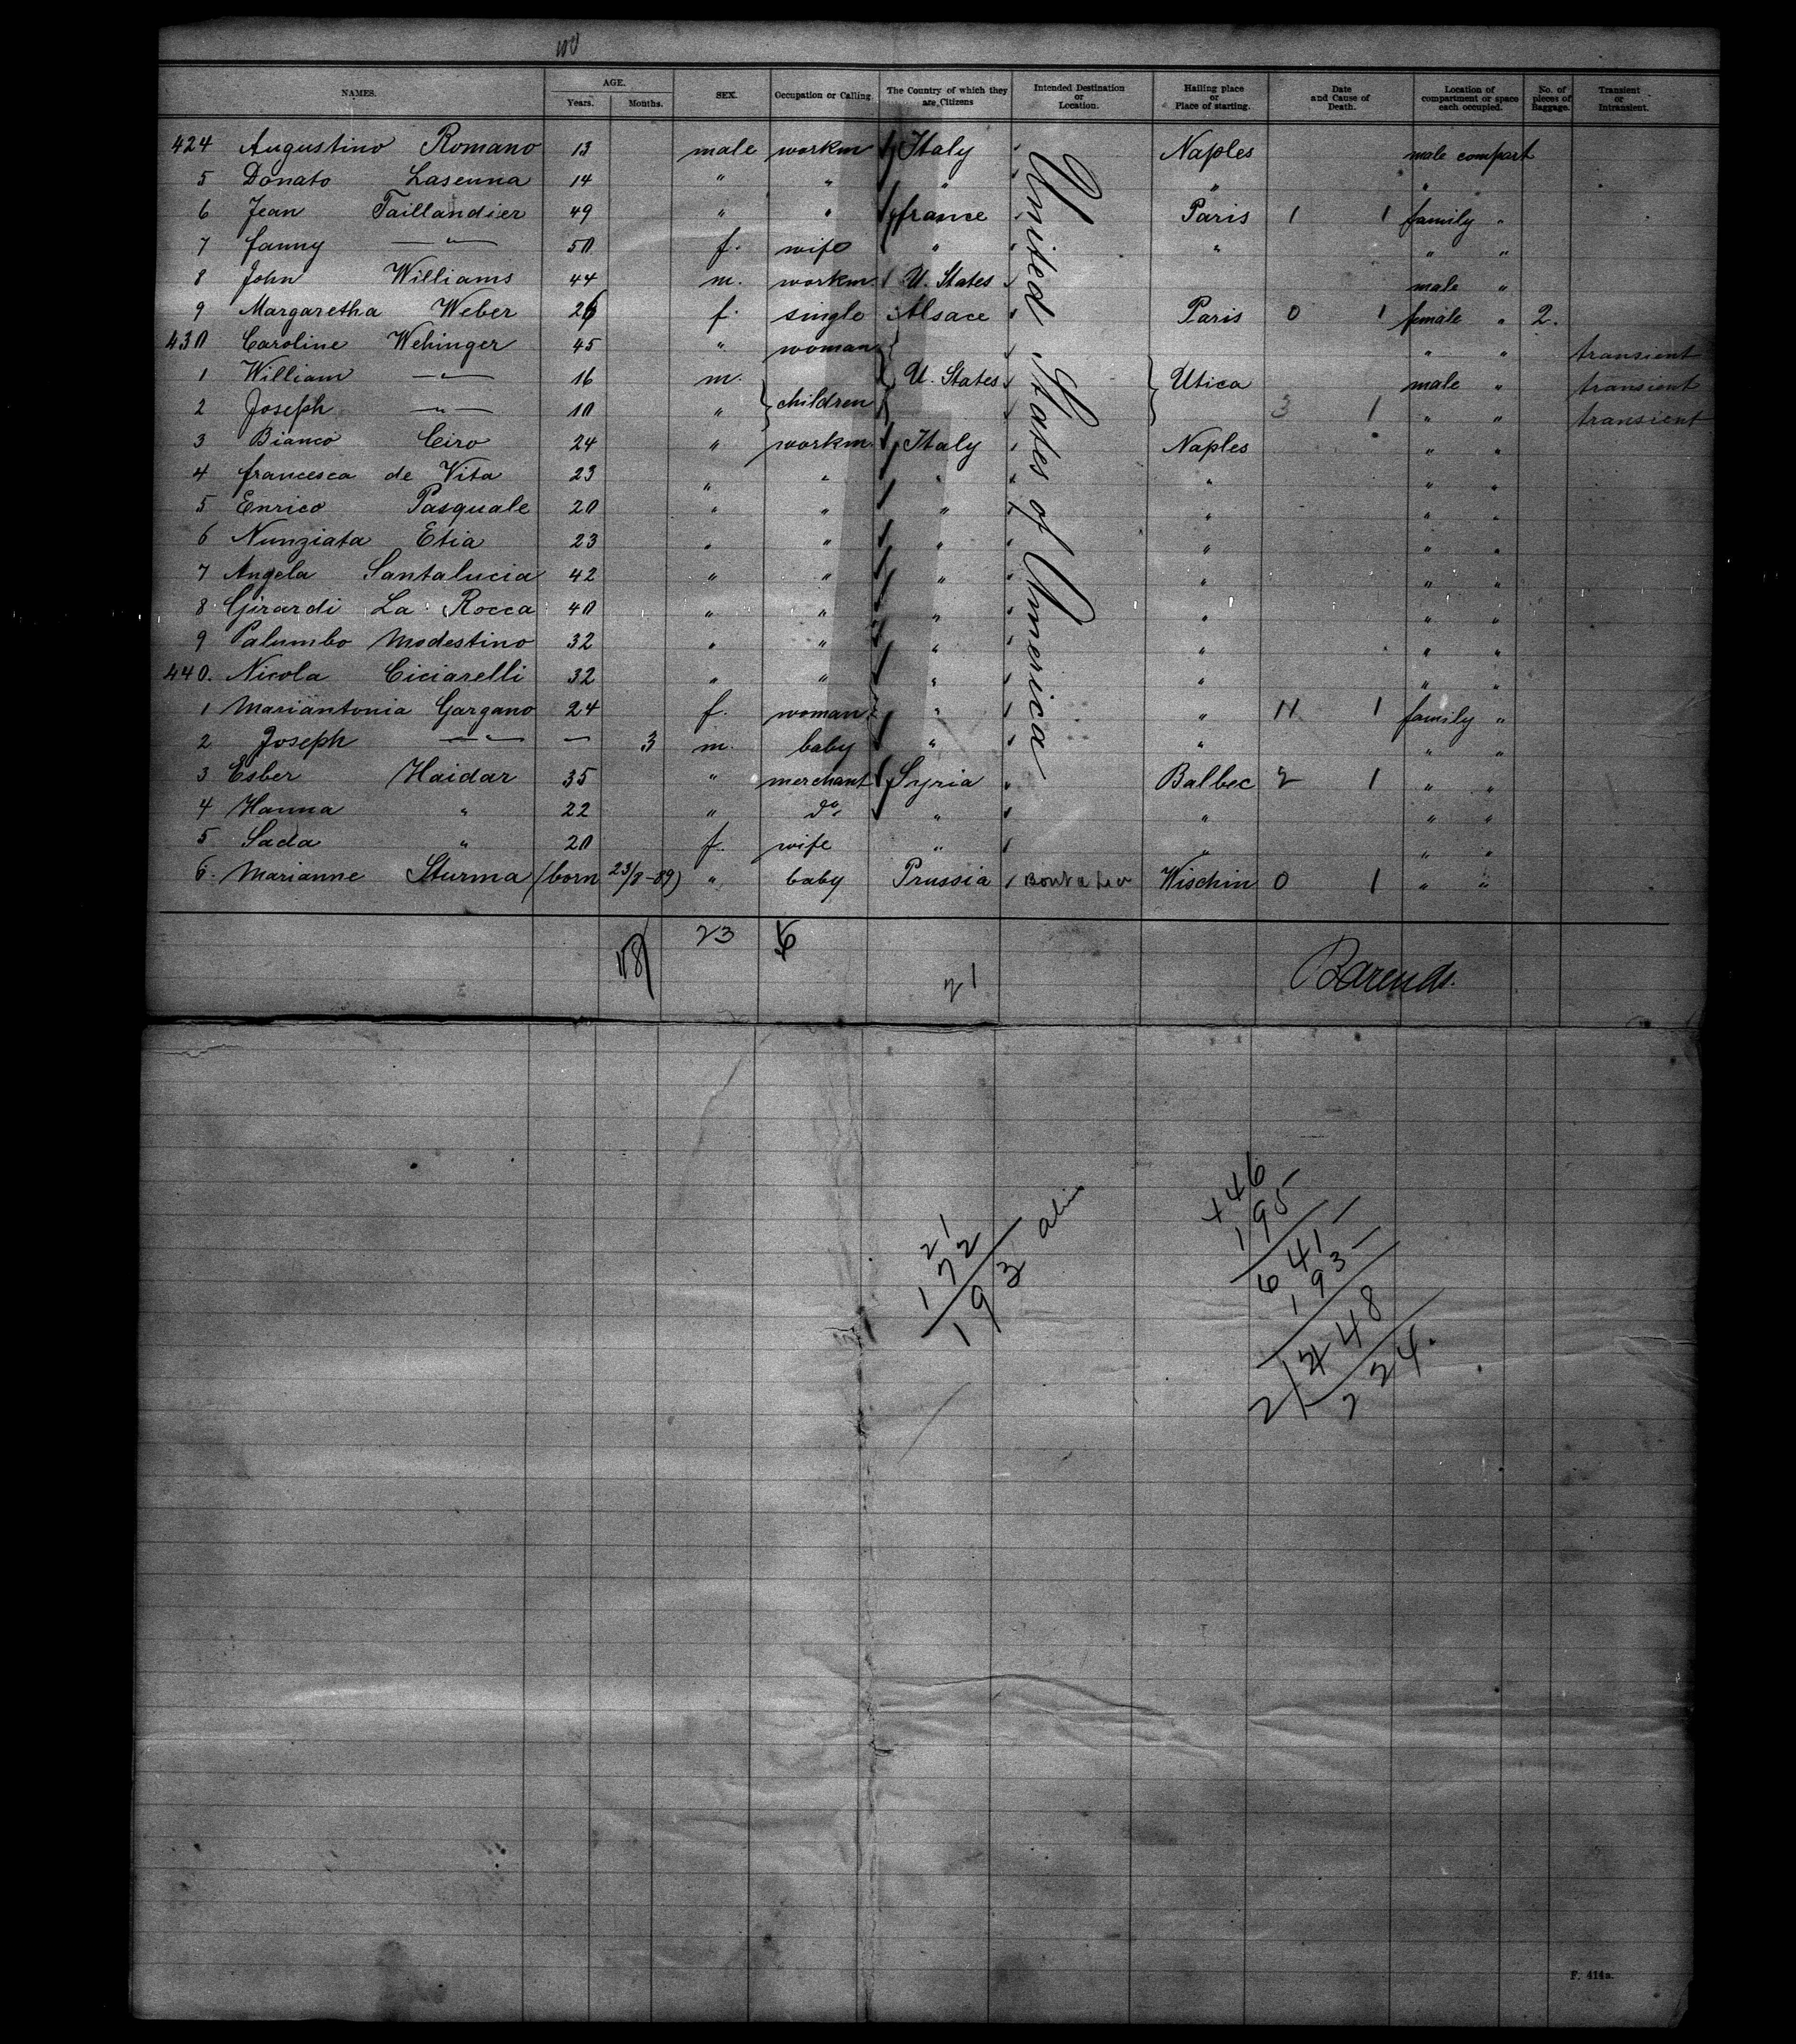 NAMES. AGE. Years. Months. SEX. Occupation or Calling The Country of which they are Citizens Intended Destination or Location. Hailing place or Place of starting. Date and Cause of Death. Location of compartment or space each occupied. No. of pieces of Baggage. Transient or Intransient.
424 Augustino Romano 13 male workm Italy Naples male compart
5 Donato Lasenna 14 " " " " "
6 Jean Taillandier 49 " " france Paris 1 1 family "
7 fanny — " — 50 f. wife " " " "
8 John Williams 44 m. workm U. States male "
9 Margaretha Weber 26 f. single Alsace Paris 0 1 female " 2.
430 Caroline Wehinger 45 " woman " " transient
1 William — " — 16 m. U. States Utica male " transient
2 Joseph — " — 10 " children 3 1 " " transient
3 Bianco Ciro 24 " workm. Italy Naples " "
4 francesca de Vita 23 " " " " " "
5 Enrico Pasquale 20 " " " " " "
6 Nunziata Etia 23 " " " " " "
7 Angela Santalucia 42 " " " " " "
8 Girardi La Rocca 40 " " " " " "
9 Palumbo Modestino 32 " " " " " "
440. Nicola Ciciarelli 32 " " " " " "
1 Mariantonia Gargano 24 f. woman " " 11 1 family "
2 Joseph — " — — 3 m. baby " " " "
3 Esber Haidar 35 " merchant Syria Balbec 2 1 " "
4 Hanna " 22 " do " " " "
5 Sada " 20 f. wife " " " "
6. Marianne Sturma (born 23/8-89) " baby Prussia Wischin 0 1 " "
United States of America
23
21
Barends.
21
172
193
446
195
641
193
448
224.
F. 414a.